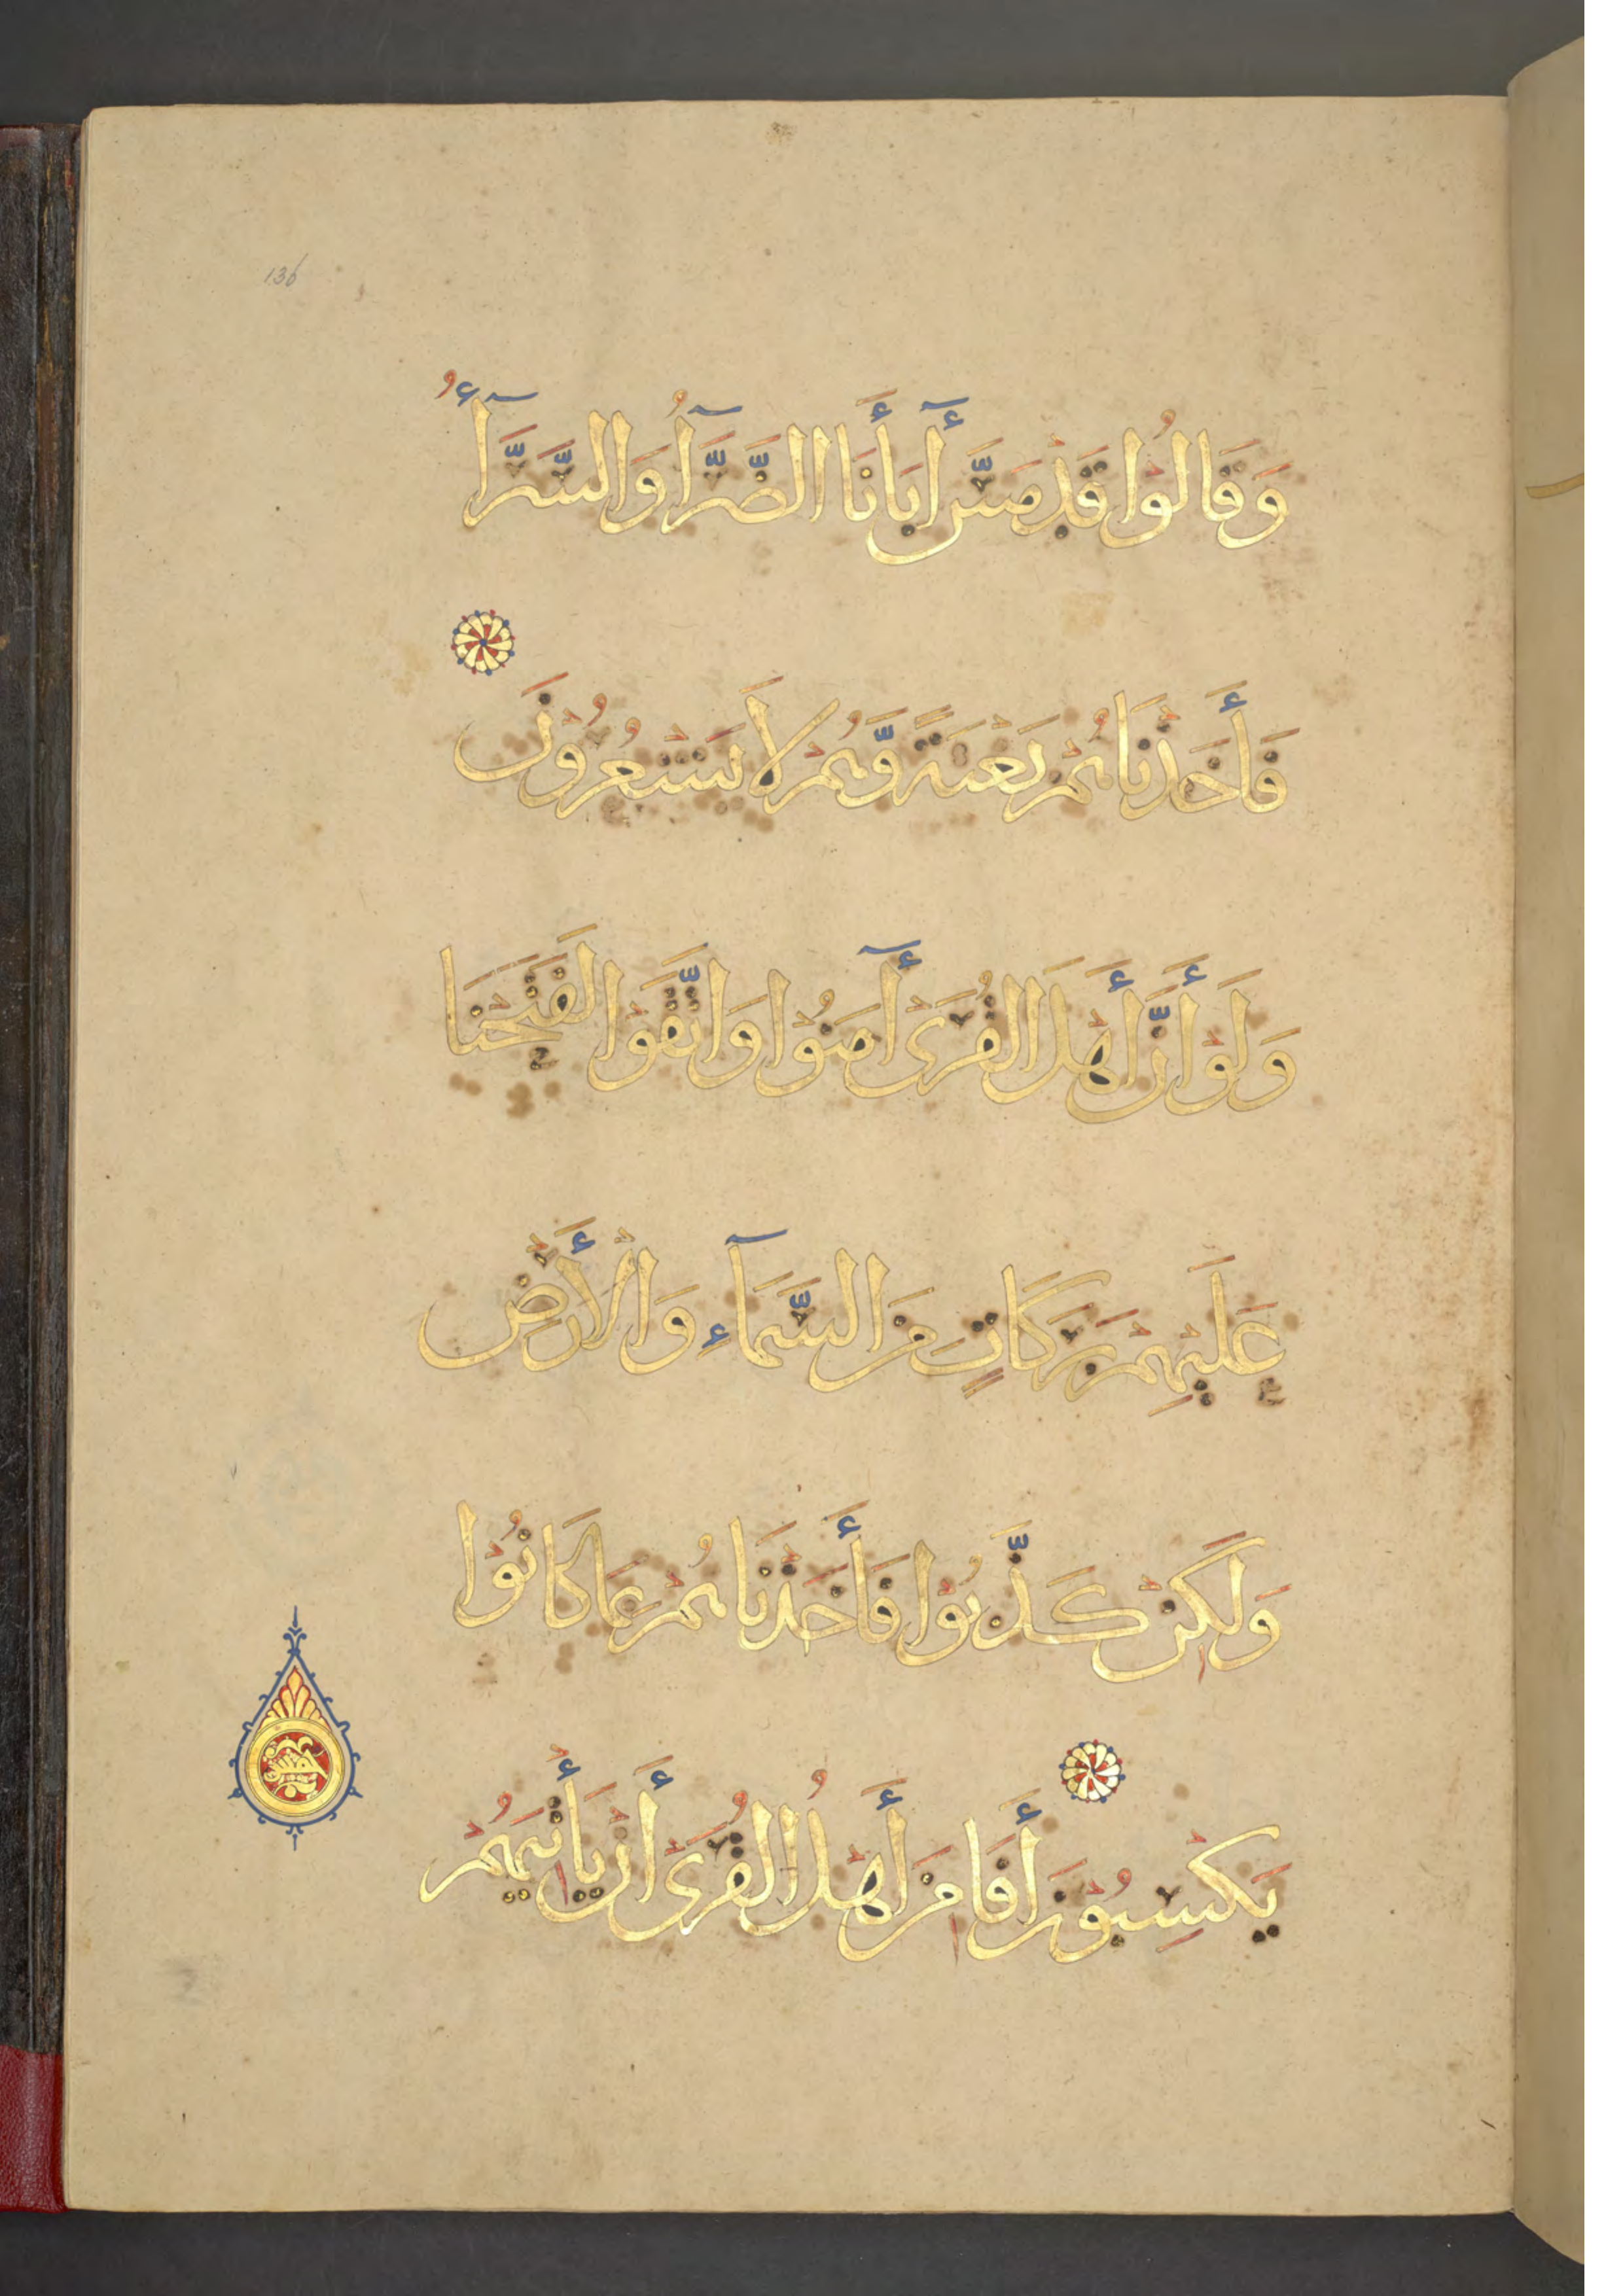 136
وَقَالُوا قَدْ مَسَّ أَبَآءَنَا الضَّرَّآءُ وَالسَّرَّآءُ
فَأَخَذْنَاهُمْ بَغْتَةً وَّهُمْ لَا يَشْعُرُوْنَ
وَلَوْ أَنَّ أَهْلَ الْقُرَىٰ آمَنُوْا وَاتَّقَوْا لَفَتَحْنَا
عَلَيْهِمْ بَرَكَاتٍ مِنَ السَّمَآءِ وَالْأَرْضِ
وَلٰكِنْ كَذَّبُوْا فَأَخَذْنَاهُمْ بِمَا كَانُوْا
يَكْسِبُوْنَ أَفَأَمِنَ أَهْلُ الْقُرَىٰ أَنْ يَأْتِيَهُمْ